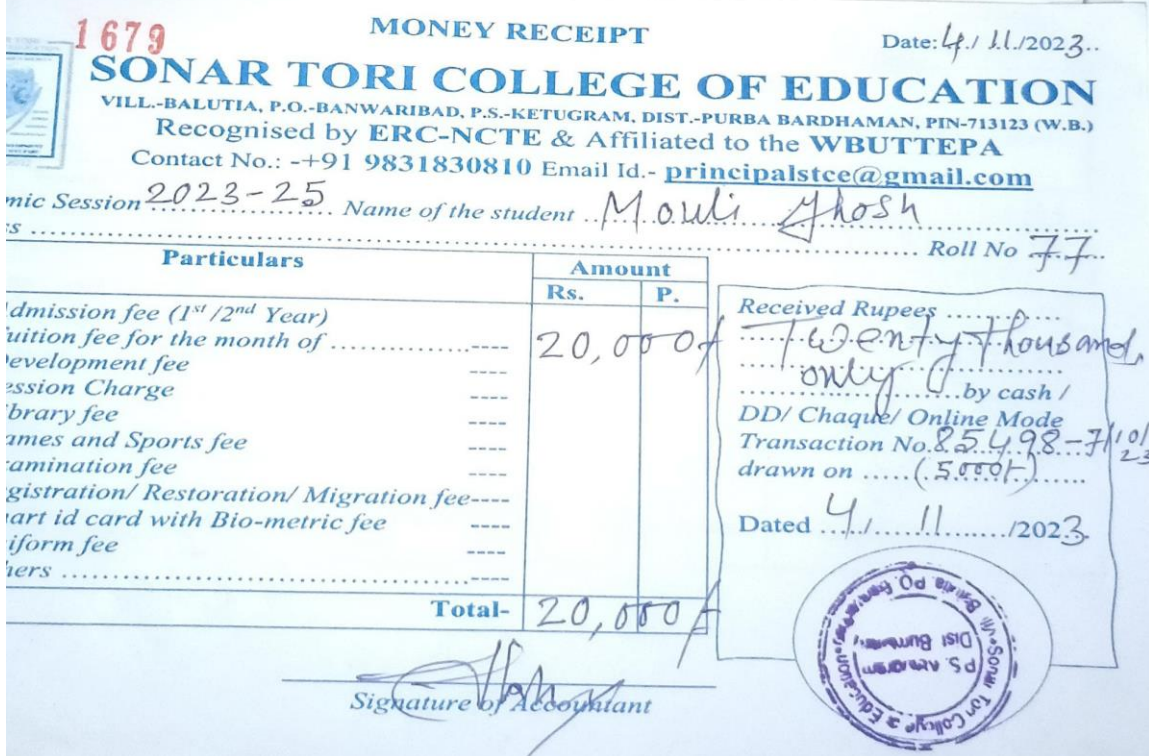 1679
MONEY RECEIPT
Date: 4/11/2023
SONAR TORI COLLEGE OF EDUCATION
VILL.-BALUTIA, P.O.-BANWARIBAD, P.S.-KETUGRAM, DIST.-PURBA BARDHAMAN, PIN-713123 (W.B.)
Recognised by ERC-NCTE & Affiliated to the WBUTTEPA
Contact No.: -+91 9831830810 Email Id.- principalstce@gmail.com
mic Session 2023-25 Name of the student Mouli Ghosh
s .......... Roll No 77
Particulars Amount
Rs. P.
dmission fee (1st /2nd Year)
uition fee for the month of ................---- 20,000/-
evelopment fee ----
ession Charge ----
ibrary fee ----
ames and Sports fee ----
amination fee ----
gistration/ Restoration/ Migration fee----
art id card with Bio-metric fee ----
iform fee ----
hers ..........----
Total- 20,000/-
Received Rupees ............
Twenty Thousand
only by cash /
DD/ Chaque/ Online Mode
Transaction No. 85498-7/10/23
drawn on .....(5000/-)......
Dated 4/11/2023
Signature of Accountant
Sonar Tori College
Education
P.S.
Dist